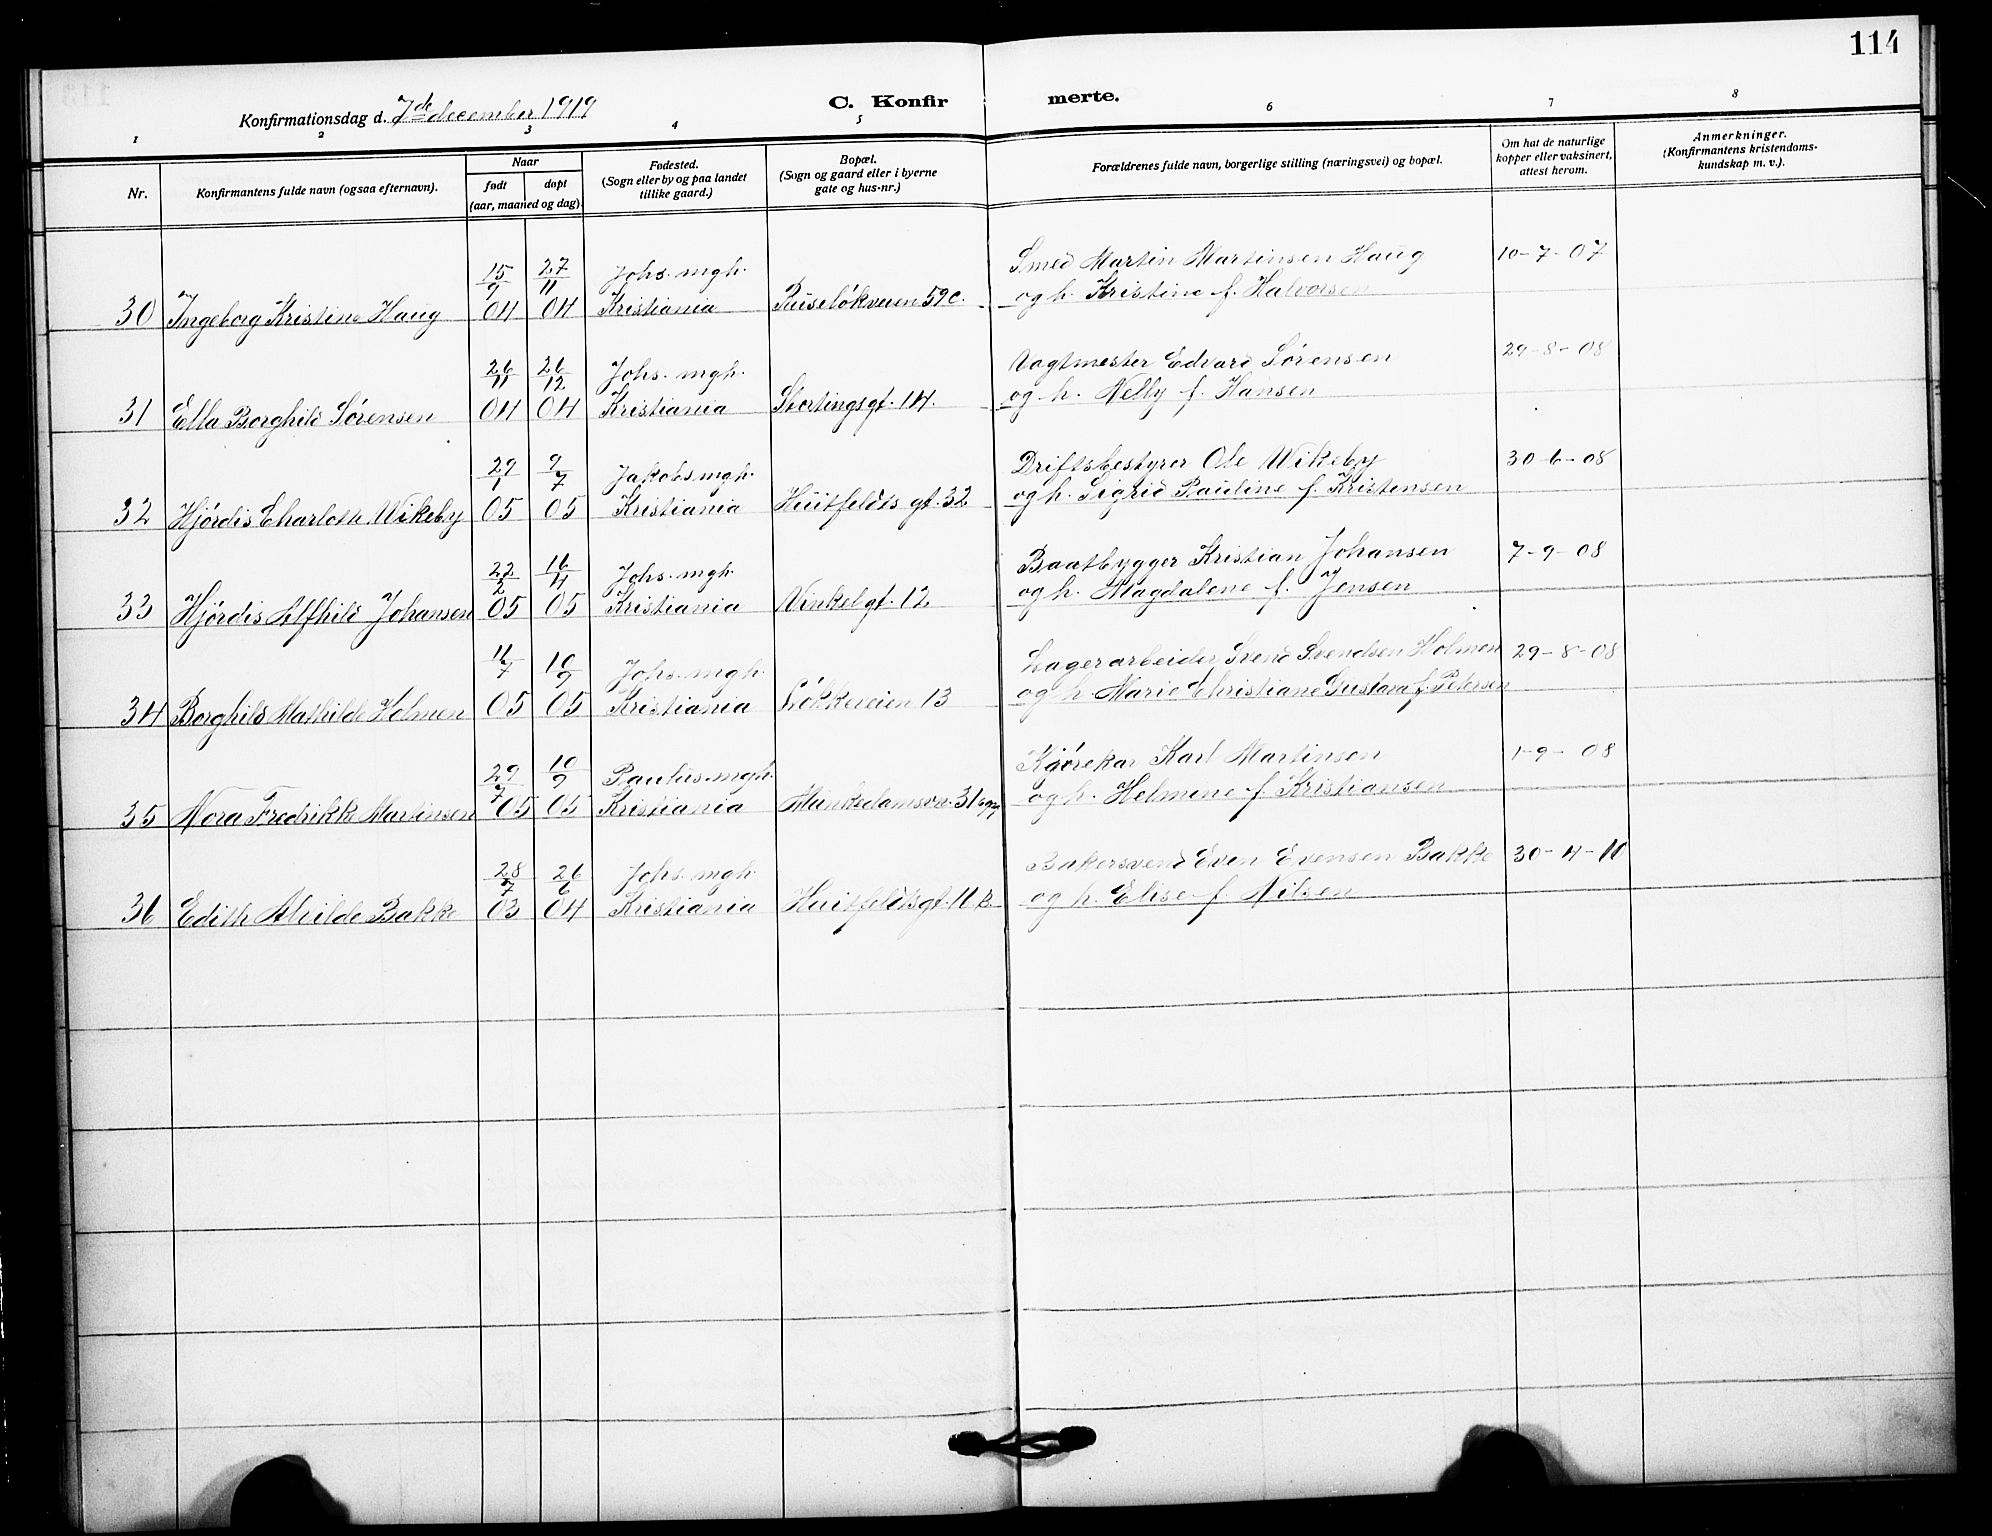 114
Konfirmationsdag d. 7de december 1919
C. Konfir merte.
1 2 3 4 5 6 7 8
Nr.
Konfirmantens fulde navn (ogsaa efternavn).
Naar
født døpt
(aar, maaned og dag).
Fødested.
(Sogn eller by og paa landet
tillike gaard.)
Bopæl.
(Sogn og gaard eller i byerne
gate og hus-nr.)
Forældrenes fulde navn, borgerlige stilling (næringsvei) og bopæl.
Om hat de naturlige
kopper eller vaksinert,
attest herom.
Anmerkninger.
(Konfirmantens kristendoms-
kundskap m. v.).
15/9 27/11 Johs. mgh. Smed Martin Martinsen Haug 10-7-07
30 Ingeborg Kristine Haug 04 04 Kristiania Ruseløkveien 59c. og h. Kristine f. Halvorsen
26/11 26/12 Johs. mgh. Vagtmester Edvard Sørensen 29-8-08
31 Ella Borghild Sørensen 04 04 Kristiania Stortingsgt. 14. og h. Nelly f. Hansen
29/1 9/7 Jakobs mgh. Driftsbestyrer Ole Wikeby 30-6-08
32 Hjørdis Charloth Wikeby 05 05 Kristiania Huitfeldts gt. 32 og h. Sigrid Pauline f. Kristensen
22/2 16/4 Johs. mgh. Baatbygger Kristian Johansen 7-9-08
33 Hjørdis Alfhild Johansen 05 05 Kristiania Vinkelgt. 12 og h. Magdalene f. Jensen
11/7 10/9 Johs. mgh. Lagerarbeider Svend Svendsen Holmen 29-8-08
34 Borghild Mathilde Holmen 05 05 Kristiania Løkkeveien 13 og h. Marie Christiane Gustava f. Petersen
29/7 10/9 Paulus mgh. Kjørekar Karl Martinsen 1-9-08
35 Nora Fredrikke Martinsen 05 05 Kristiania Munkedamsvn. 31 og h. Helmine f. Kristiansen
28/7 26/6 Johs. mgh. Bakersvend Even Evensen Bakke 30-4-10
36 Edith Alvilde Bakke 03 04 Kristiania Huitfeldtsgt. 11 B. og h. Elise f. Nilsen